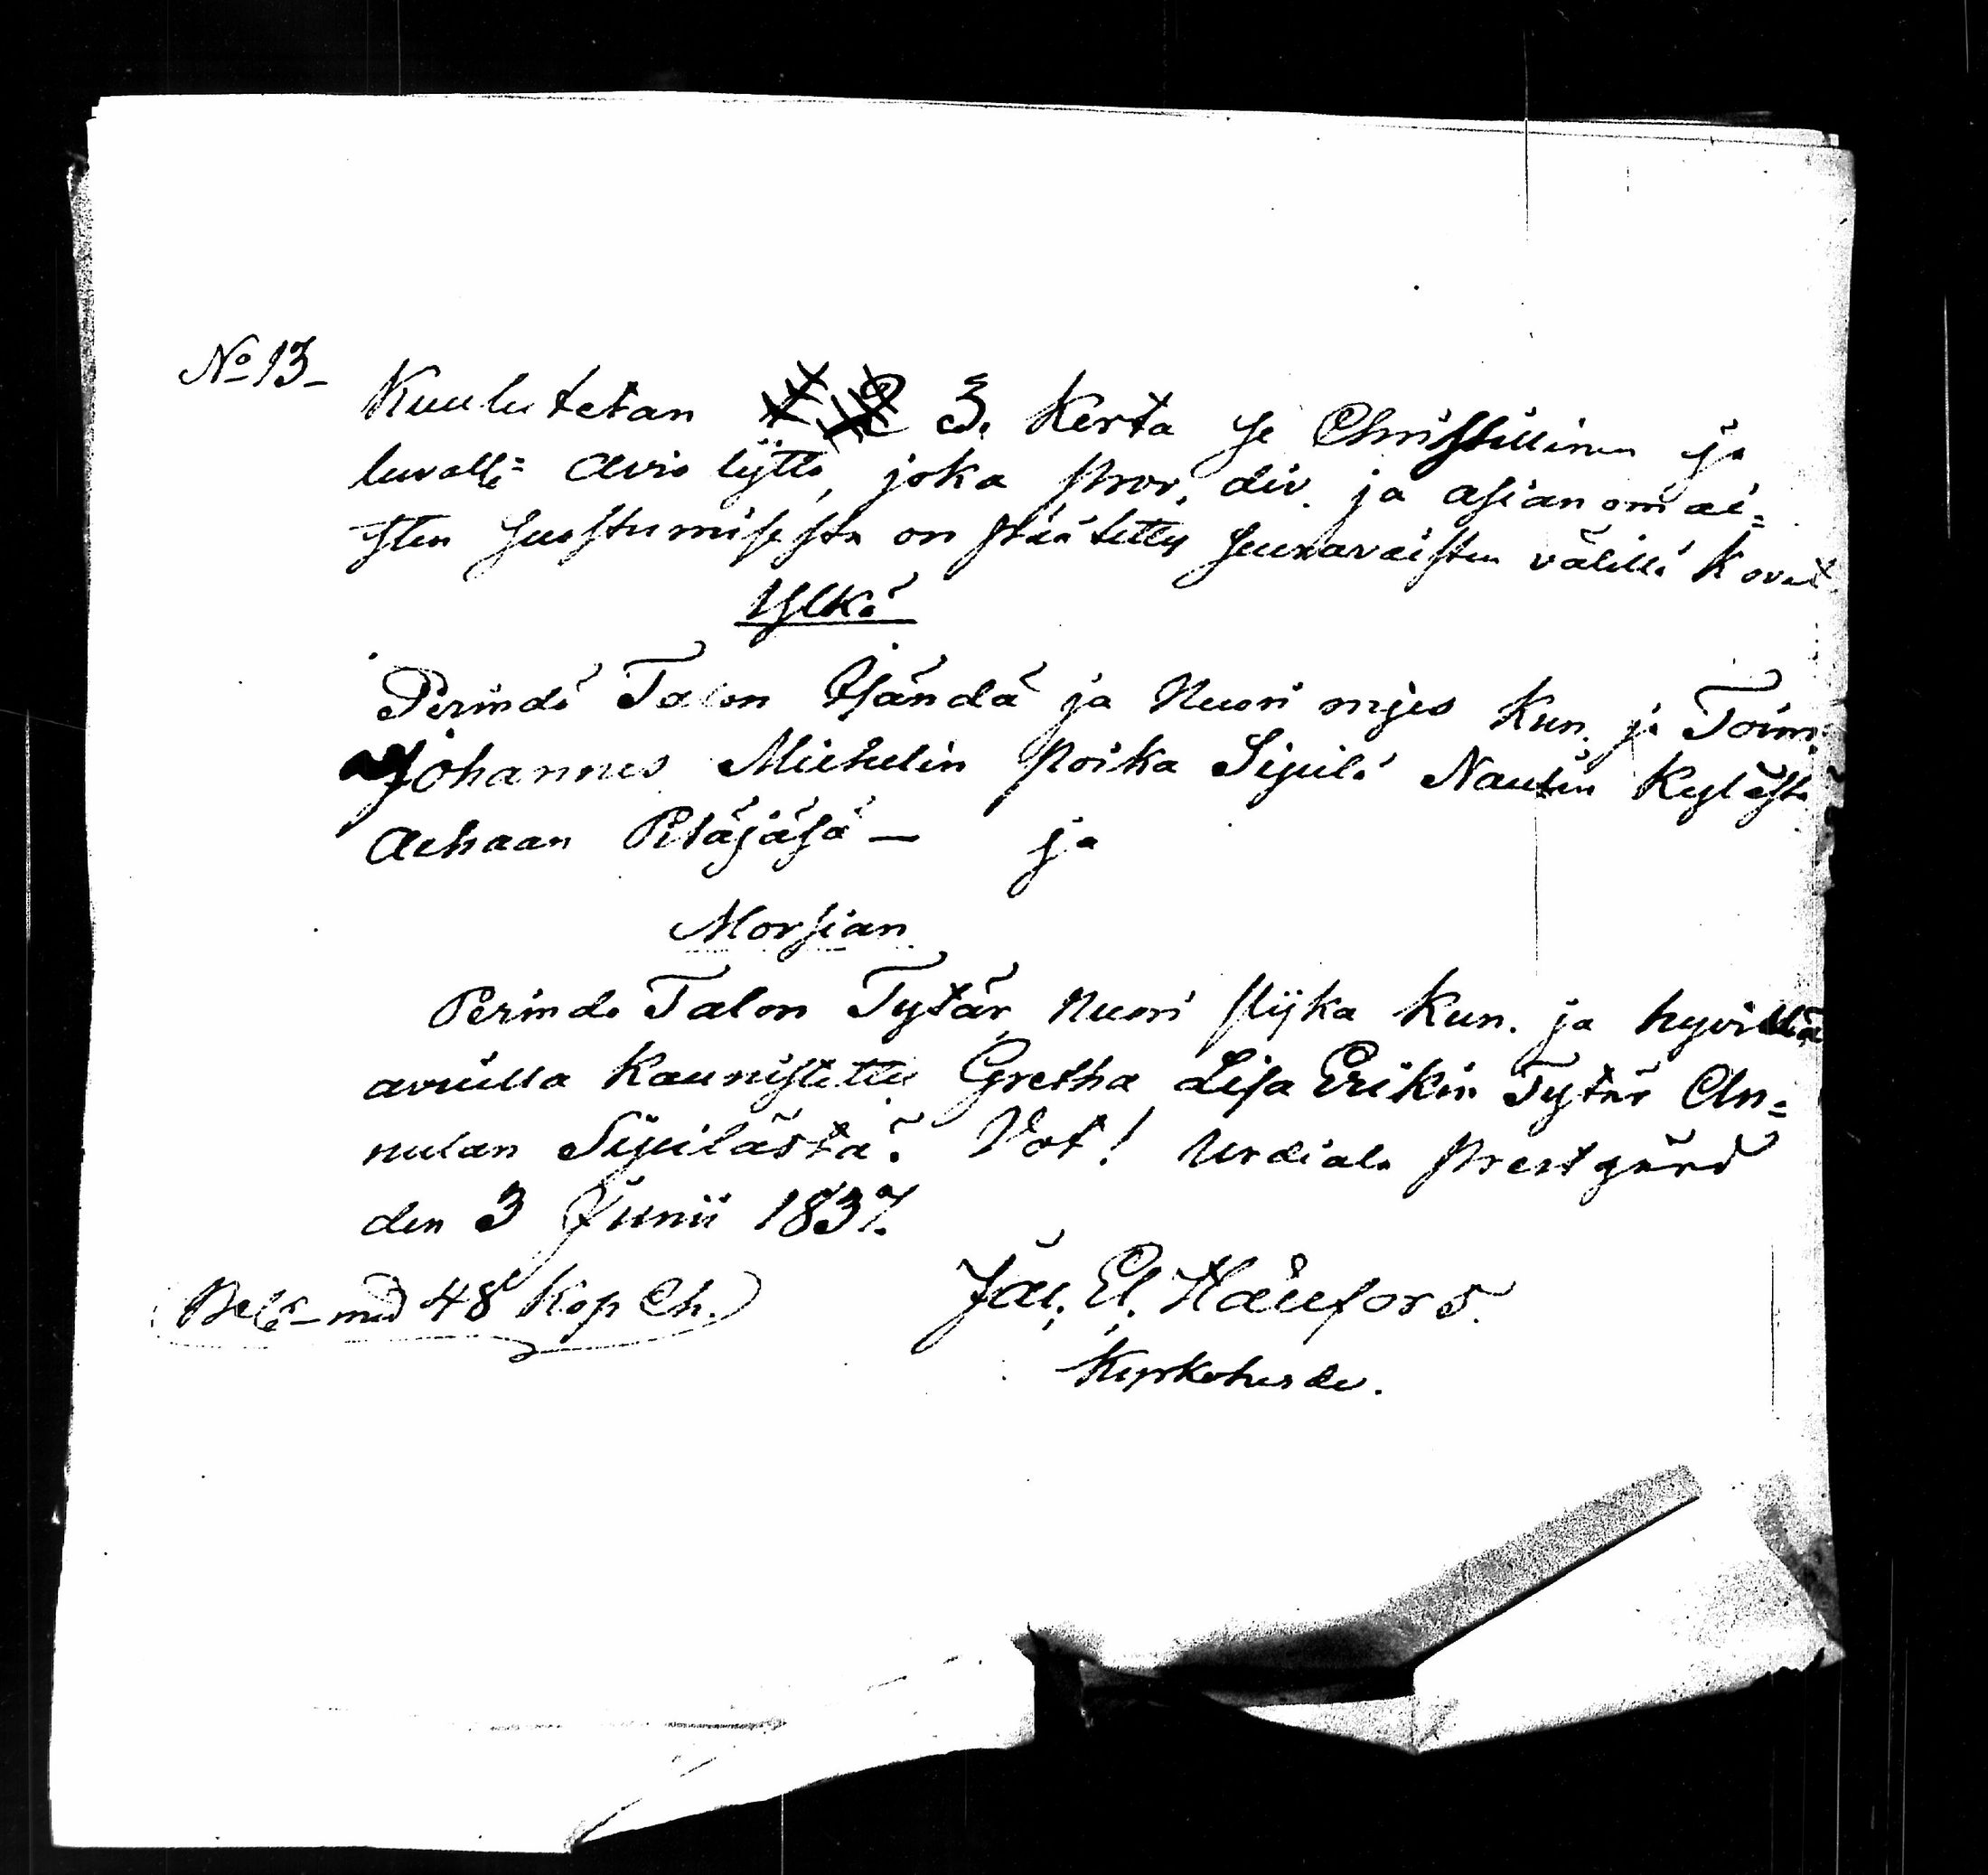 No 13-
Kuulutetan 1. 2 3. Kerta se Christillinen ja
luvalle= Avio lijtto, joka prov. div. ja asianomai=
sten suostumisesta on päätetty seuraavaisten välillä k ovat
Ylkä
Perindö Talon Isändä ja Nuori mjes Kun. ja Toim.
Johannes Michelin poika Sipilä Nautin Kylästä
Achaan Pitäjäsä — ja
Morsian
Perindö Talon Tytär, Nuori pijka Kun. ja hyvillä
avuilla Kaunistettu Gretha Lisa Erikin Tytär An=
nulan Sipilästä. Vot! Urdiala Prestgård
den 3 Junii 1837.
Bel6- med 48 Kop Ch. Jac. El.
Kyrkoherde.